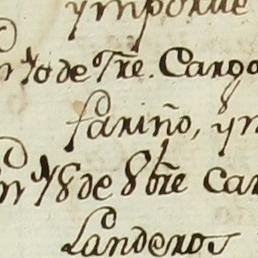 ymporttte
10 de Tre. Cargo
fariño, ym
18 de 8bre Car
Landeros